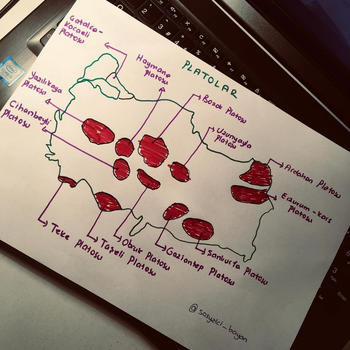 PLATOLAR
Çatalca-
Kocaeli
Platosu
Haymana
Platosu
Yazılıkaya
Platosu
Cihanbeyli
Platosu
Bozok Platosu
Uzunyayla
Platosu
Ardahan Platosu
Erzurum-Kars
Platosu
Şanlıurfa Platosu
Gaziantep Platosu
Obruk Platosu
Taşeli Platosu
Teke Platosu